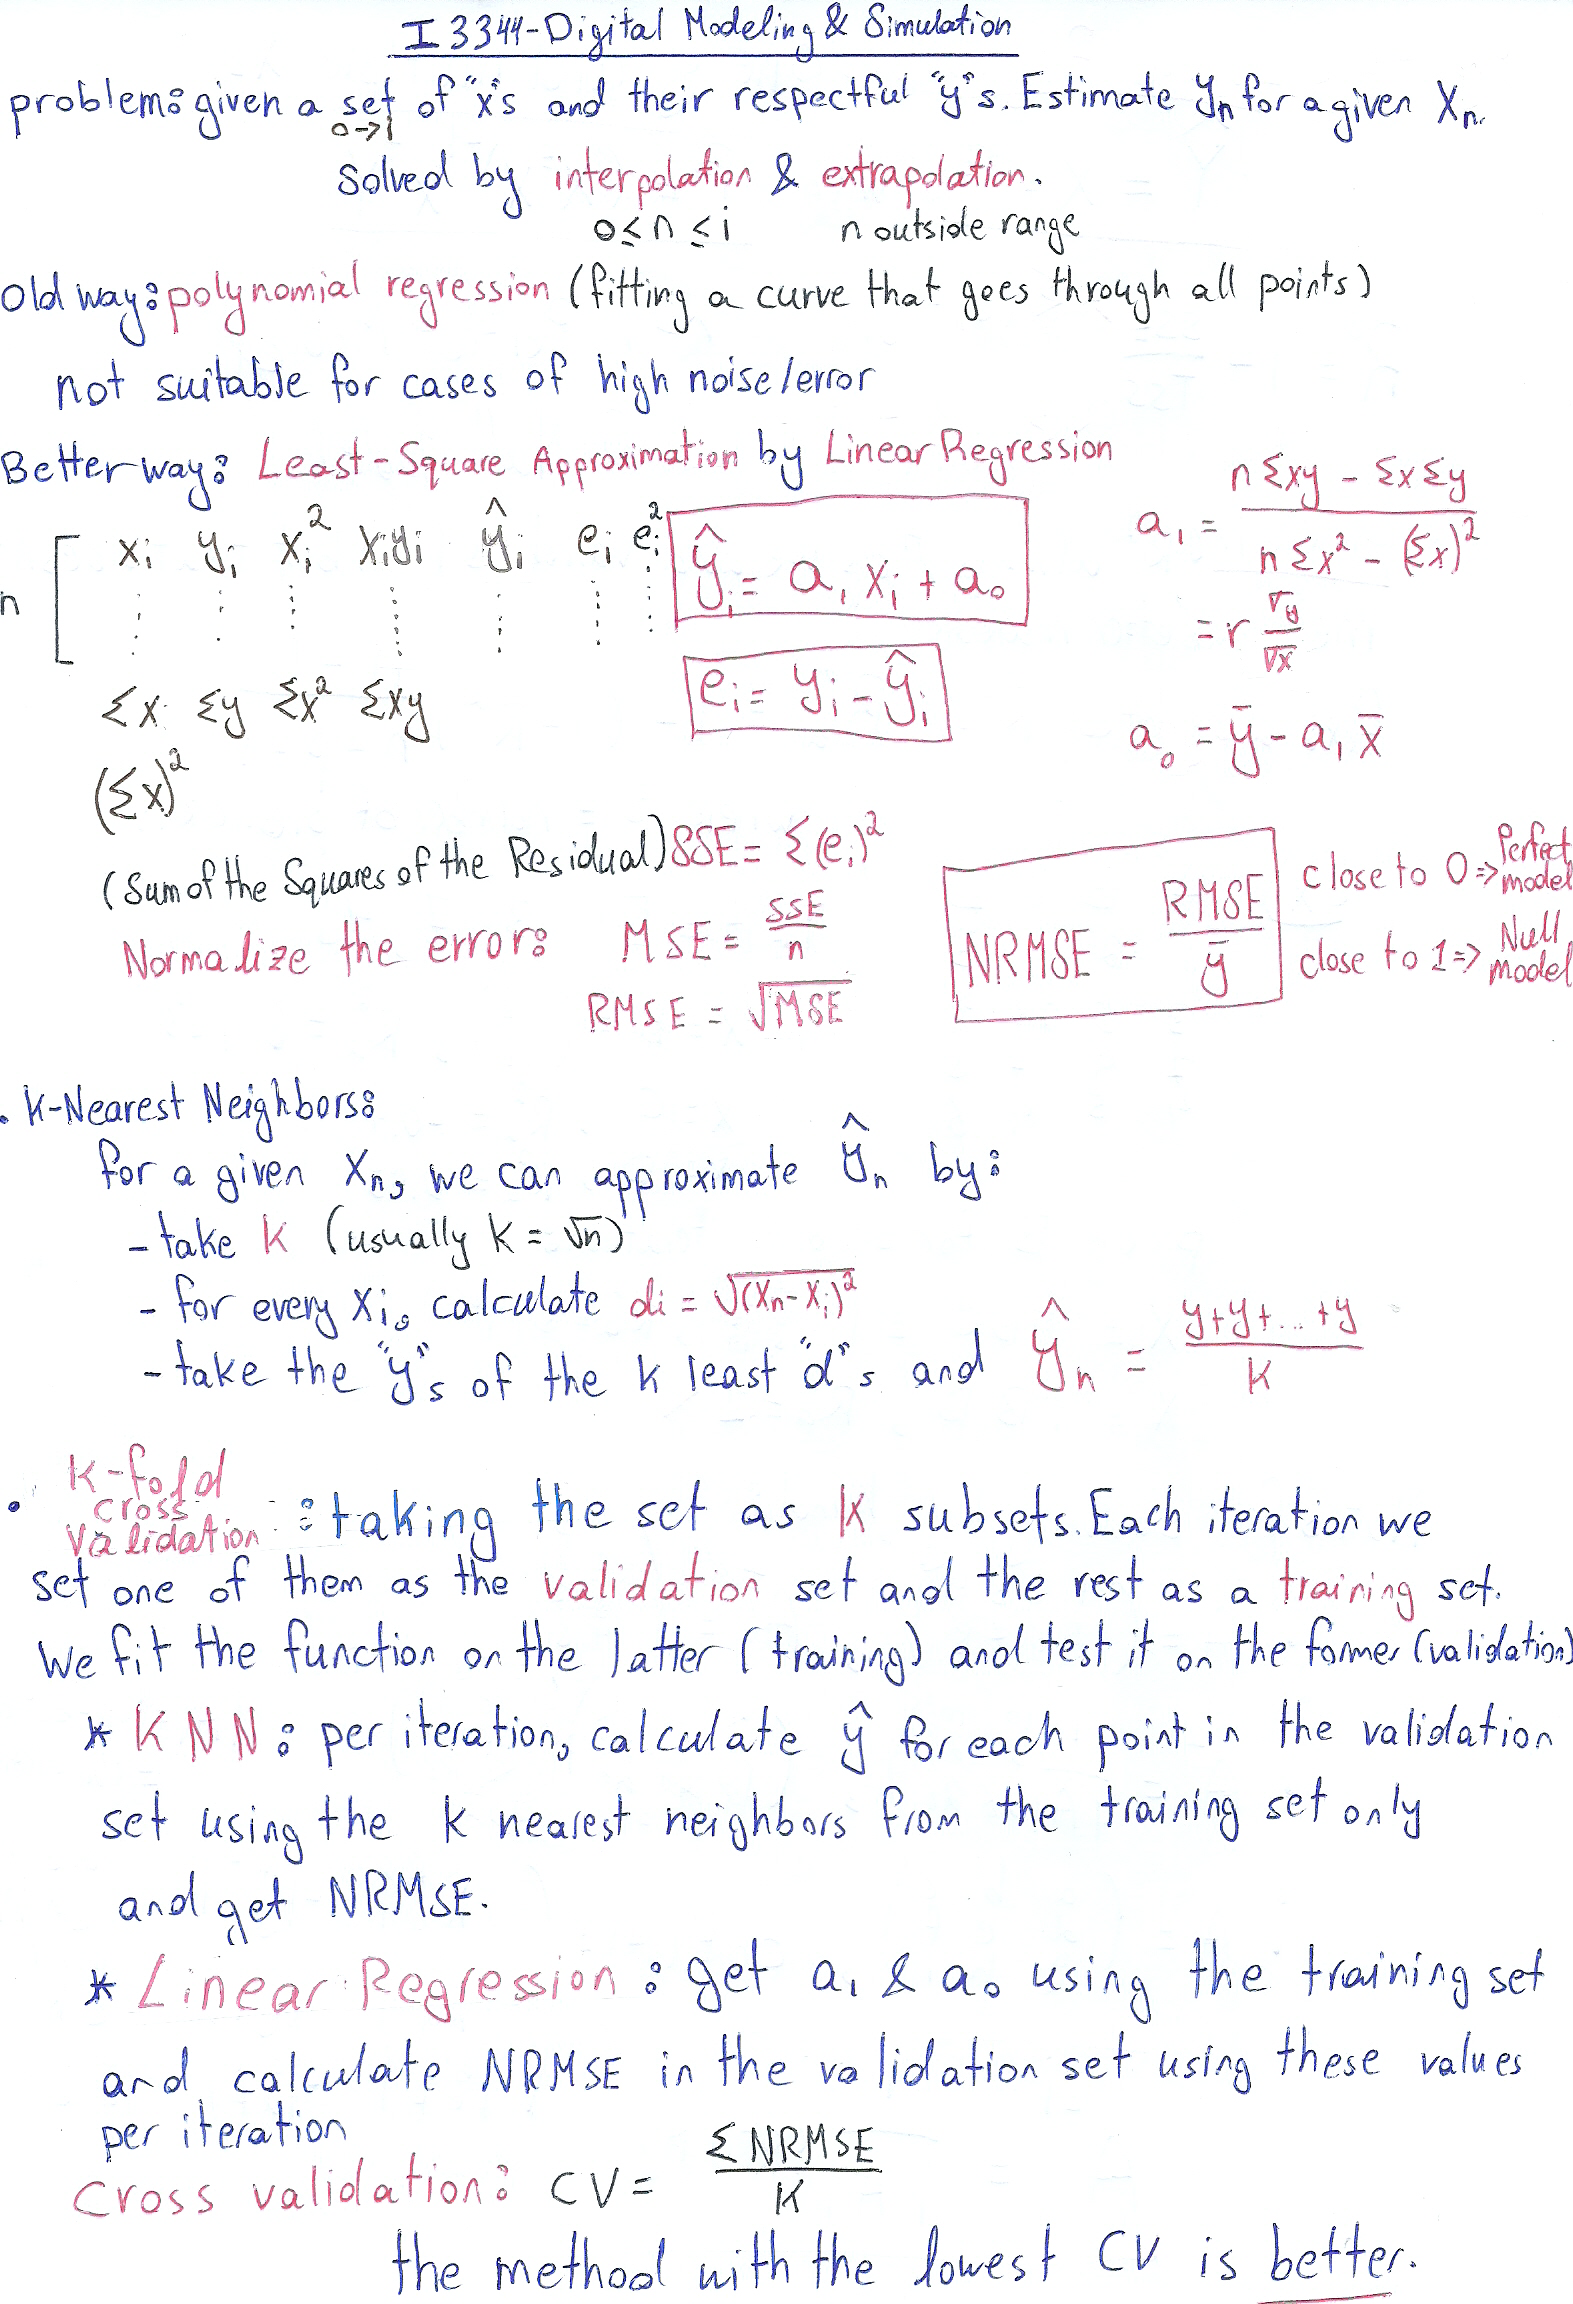 I3344-Digital Modeling & Simulation
problem: given a set of "x"s and their respectful "y"s. Estimate yn for a given Xn.
0→i
Solved by interpolation & extrapolation.
0≤n≤i n outside range
Old way: polynomial regression (fitting a curve that goes through all points)
not suitable for cases of high noise/error
Better way: Least-Square Approximation by Linear Regression
n [ xi yi xi² xiyi ŷi ei ei²
ŷi = a₁ xi + a₀
a₁ = (nΣxy - ΣxΣy) / (nΣx² - (Σx)²)
= r σy/σx
Σx Σy Σx² Σxy
ei = yi - ŷi
a₀ = ȳ - a₁ x̄
(Σx)²
(Sum of the Squares of the Residual) SSE = Σ(ei)²
Normalize the error: MSE = SSE/n
RMSE = √MSE
NRMSE = RMSE/ȳ
close to 0 => Perfect model
close to 1 => Null model
. K-Nearest Neighbors:
for a given Xn, we can approximate ŷn by:
- take K (usually K = √n)
- for every Xi, calculate di = √(Xn-Xi)²
- take the "y"s of the k least "d"s and ŷn = (y+y+...+y)/K
• K-fold cross validation : taking the set as K subsets. Each iteration we
set one of them as the validation set and the rest as a training set.
We fit the function on the latter (training) and test it on the former (validation)
* KNN: per iteration, calculate ŷ for each point in the validation
set using the k nearest neighbors from the training set only
and get NRMSE.
* Linear Regression: get a₁ & a₀ using the training set
and calculate NRMSE in the validation set using these values
per iteration
Cross validation: CV = ΣNRMSE/K
the method with the lowest CV is better.